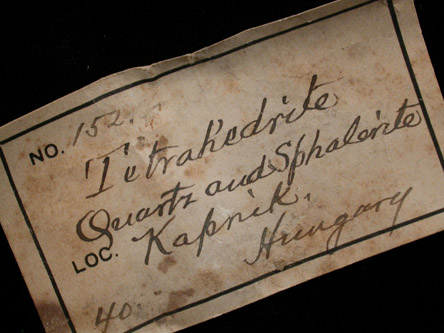 NO. 152.
Tetrahedrite
Quartz and Sphalerite
LOC. Kapnik.
Hungary
40.